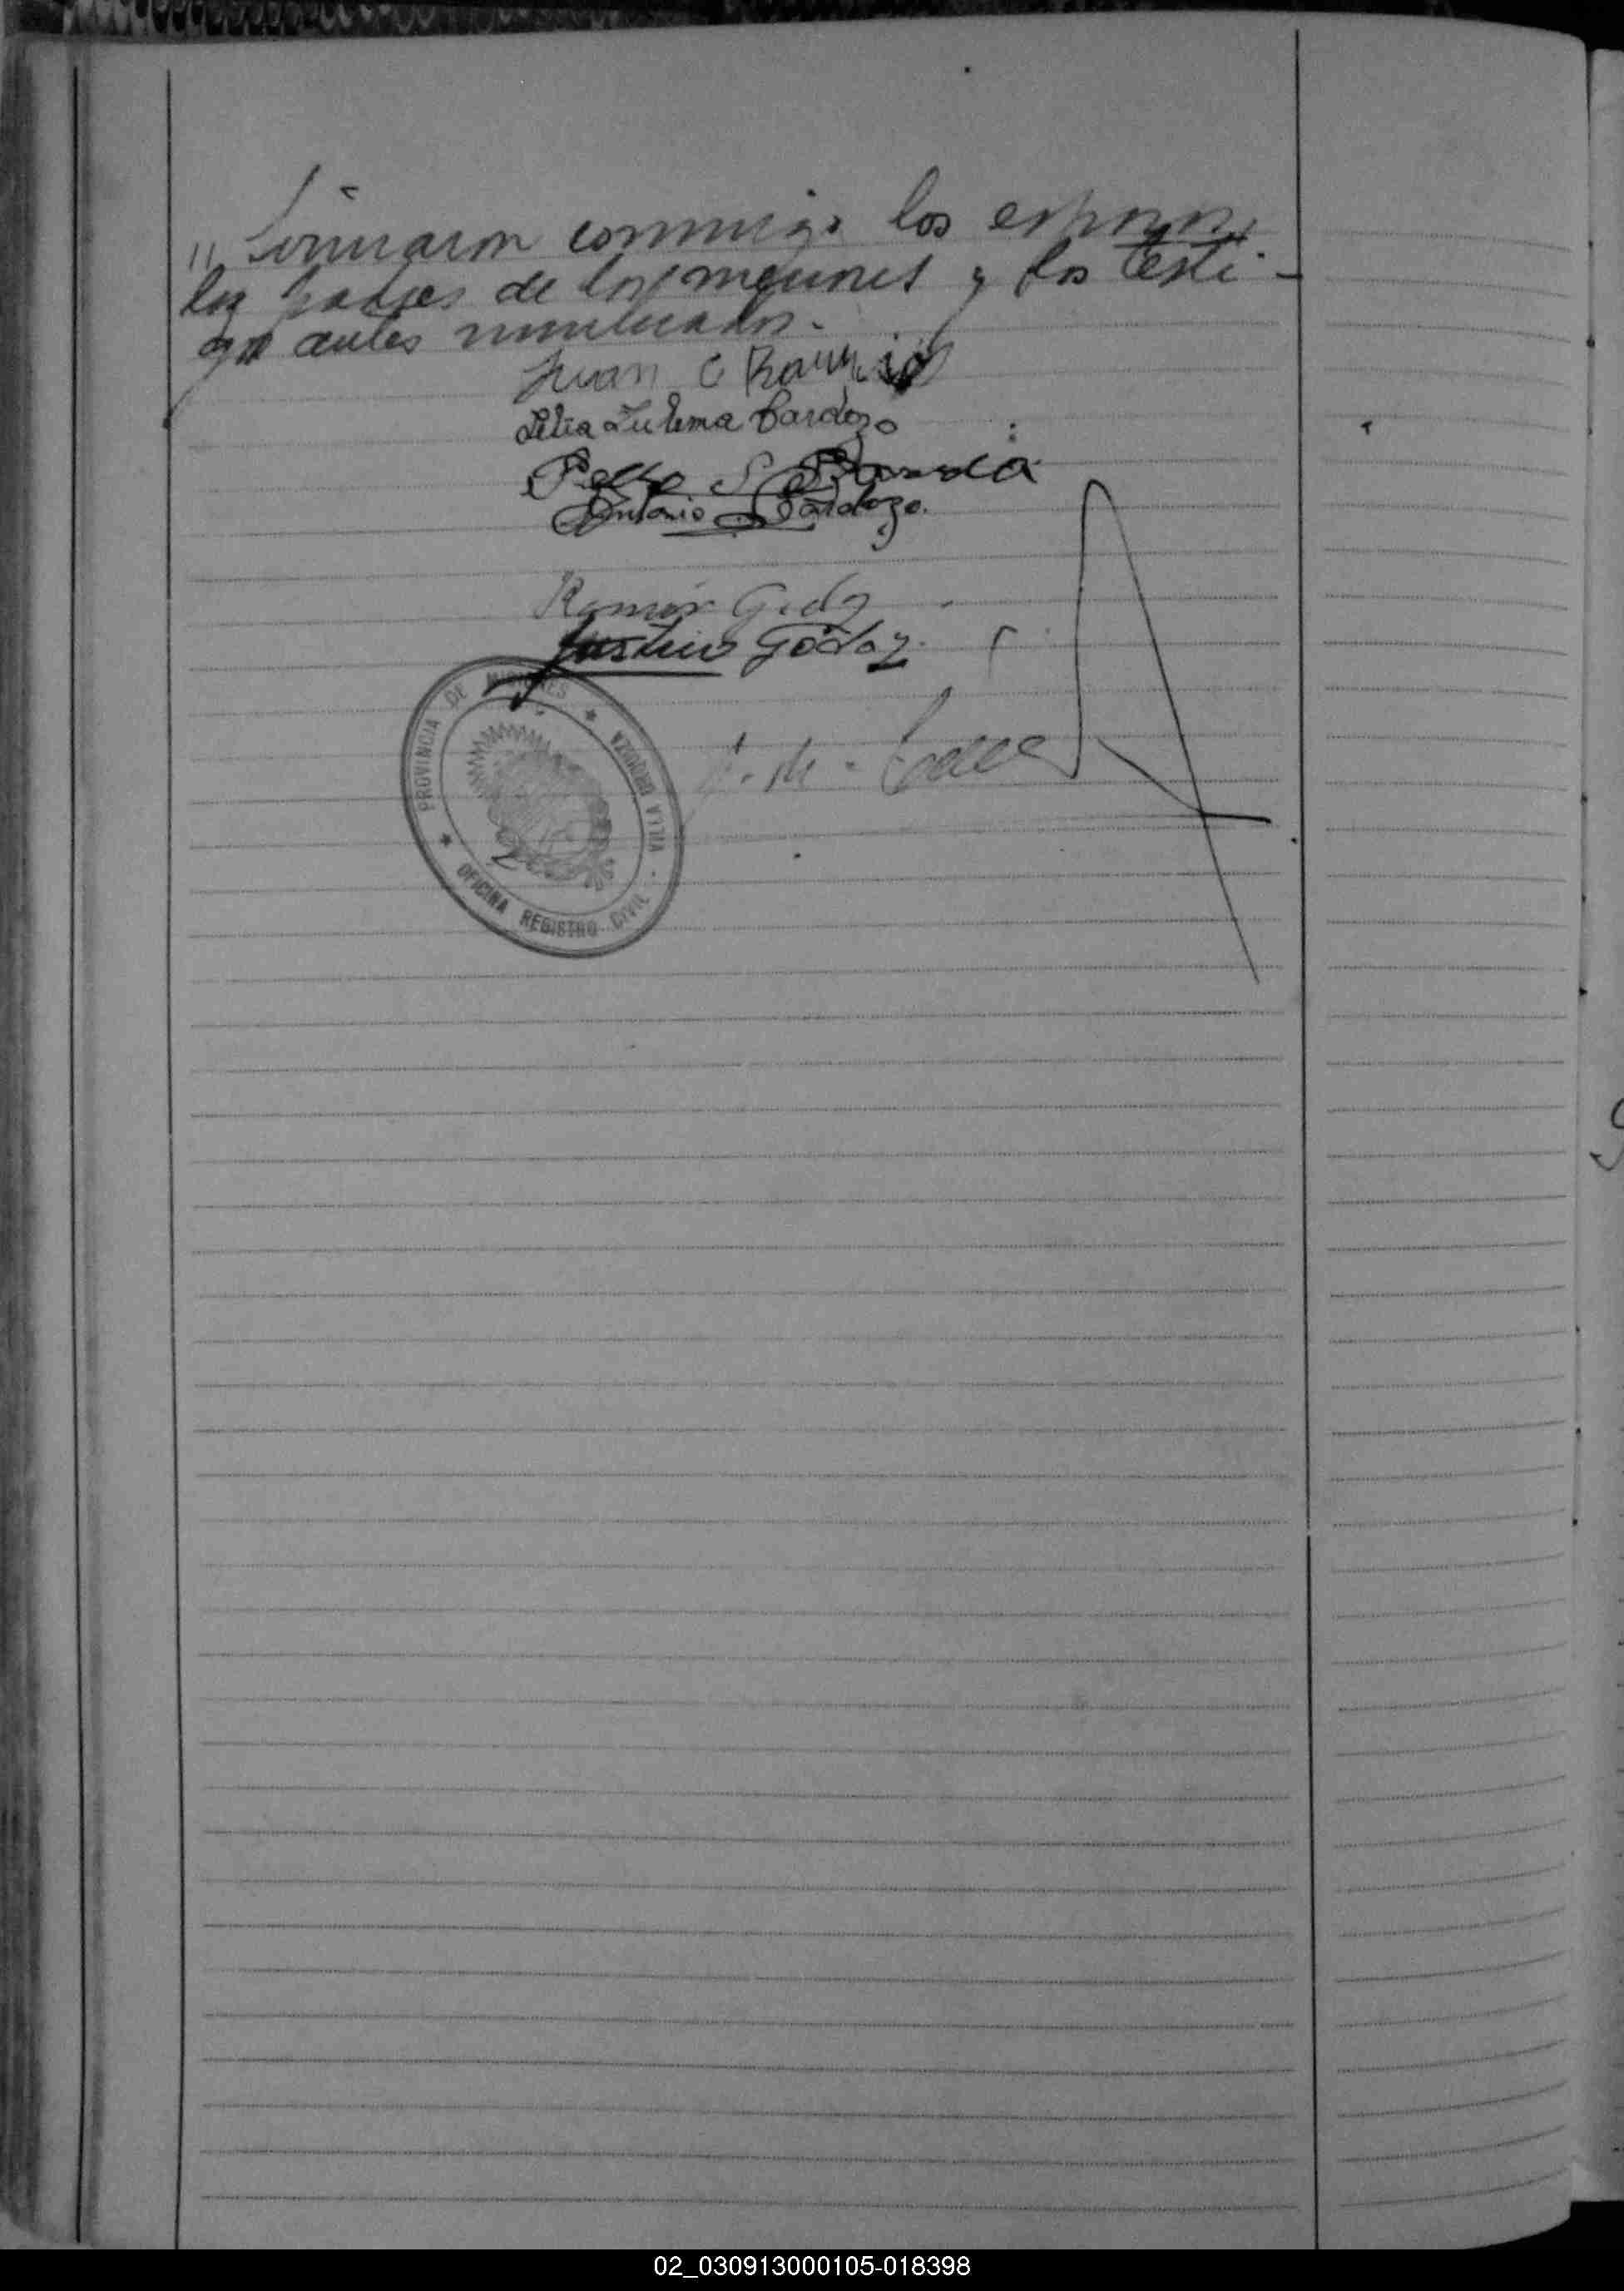 " firmaron conmigo los esposos,
los padres de los menores y los testi-
gos antes nombrados.-
Juan C
Lelia Zulema Cardozo
Pedro S
Antonio Cardozo.
Ramón Godoy
Justino Godoy.
PROVINCIA DE MISIONES ★ VILLA URQUIZA - OFICINA REGISTRO CIVIL ★
02_030913000105-018398